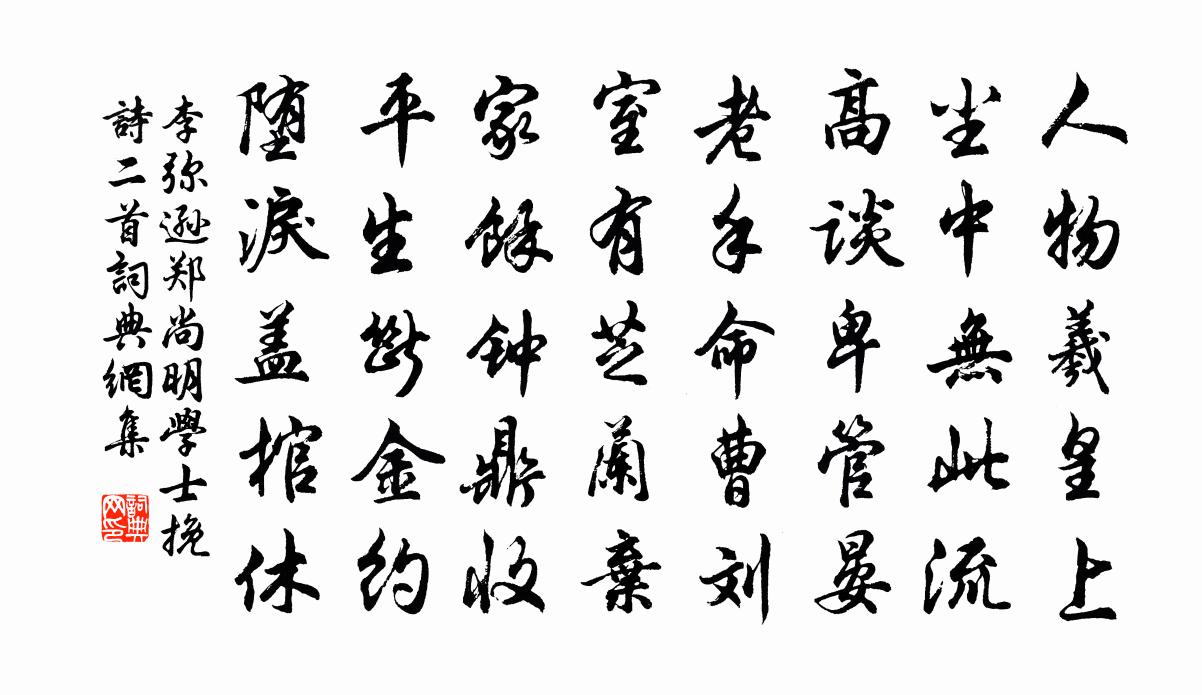 人物羲皇上
尘中無此流
高談卑管晏
老手命曹刘
室有芝蘭棄
家餘钟鼎收
平生斷金约
堕淚盖棺休
李弥遜郑尚明學士挽
詩二首詞典網集
詞典网印